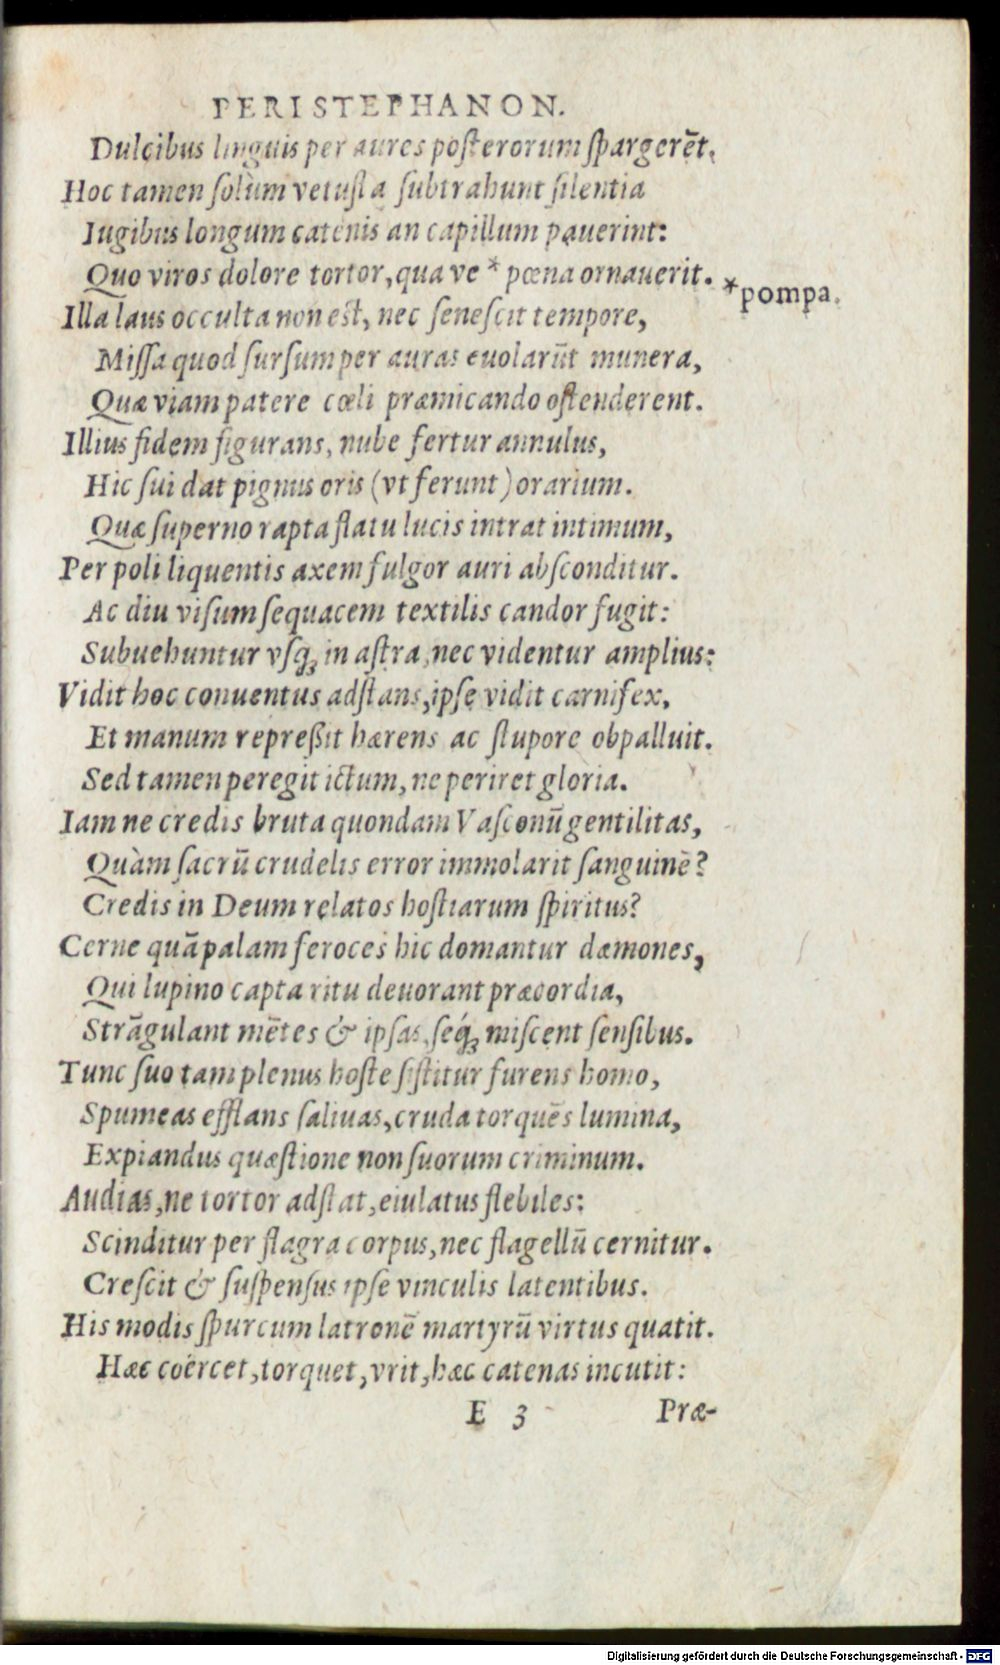 PERISTEPHANON.
Dulcibus linguis per aures posterorum spargerēt.
Hoc tamen solùm vetusta subtrahunt silentia
Iugibus longum catenis an capillum pauerint:
Quo viros dolore tortor, qua ve * pœna ornauerit.
*pompa.
Illa laus occulta non est, nec senescit tempore,
Missa quod sursum per auras euolarūt munera,
Quæ viam patere cœli præmicando ostenderent.
Illius fidem figurans, nube fertur annulus,
Hic sui dat pignus oris (vt ferunt) orarium.
Quæ superno rapta flatu lucis intrat intimum,
Per poli liquentis axem fulgor auri absconditur.
Ac diu visum sequacem textilis candor fugit:
Subuehuntur vsq; in astra, nec videntur amplius:
Vidit hoc conuentus adstans, ipse vidit carnifex,
Et manum repreßit hærens ac stupore obpalluit.
Sed tamen peregit ictum, ne periret gloria.
Iam ne credis bruta quondam Vasconū gentilitas,
Quàm sacrū crudelis error immolarit sanguinē?
Credis in Deum relatos hostiarum spiritus?
Cerne quā palam feroces hic domantur dæmones,
Qui lupino capta ritu deuorant præcordia,
Strāgulant mētes & ipsas, seq́; miscent sensibus.
Tunc suo tam plenus hoste sistitur furens homo,
Spumeas efflans saliuas, cruda torquēs lumina,
Expiandus quæstione non suorum criminum.
Audias, ne tortor adstat, eiulatus flebiles:
Scinditur per flagra corpus, nec flagellū cernitur.
Crescit & suspensus ipse vinculis latentibus.
His modis spurcum latronē martyrū virtus quatit.
Hæc coërcet, torquet, vrit, hæc catenas incutit:
E 3 Præ-
Digitalisierung gefördert durch die Deutsche Forschungsgemeinschaft - DFG